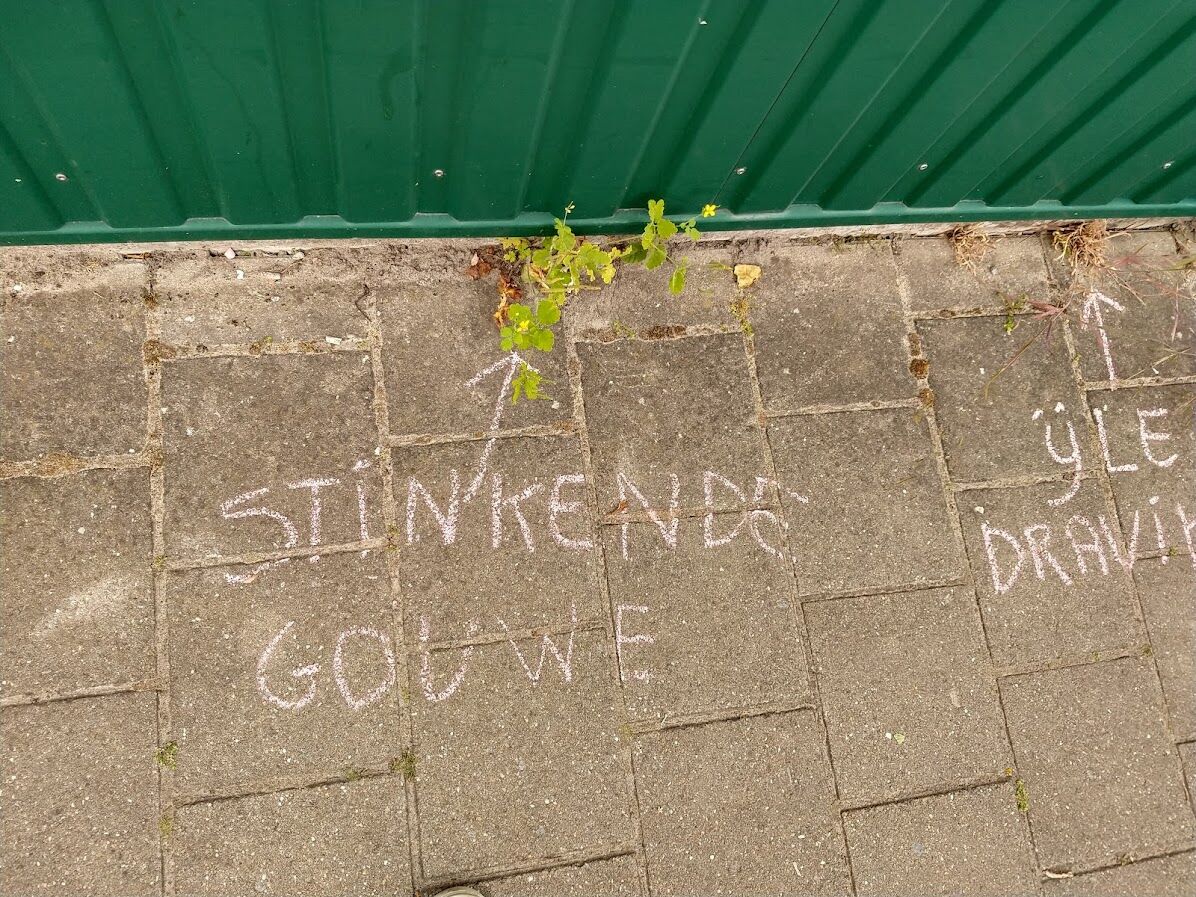 STINKENDE
GOUWE
ÿLE
DRAVIK